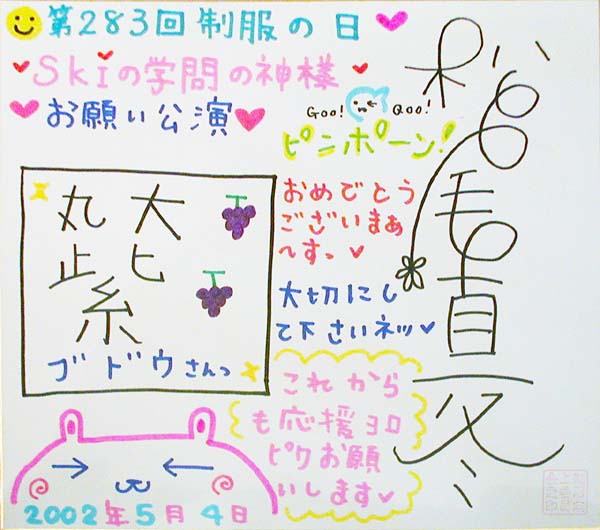 第283回制服の日
SKiの学問の神様
お願い公演
Goo! Qoo!
ピンポーン!
おめでとう
ございまぁ
〜すっ
大切にし
て下さいネッ
これから
も応援ヨロ
ピクお願
いします
丸大
紫
ブドウさんっ
2002年5月4日